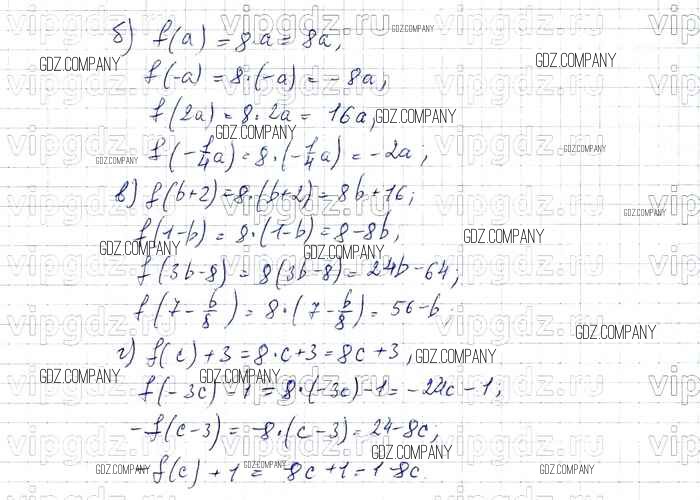 б) f(a) = 8·a = 8a,
f(-a) = 8·(-a) = -8a,
f(2a) = 8·2a = 16a,
f(-1/4a) = 8·(-1/4a) = -2a;
в) f(b+2) = 8·(b+2) = 8b+16;
f(1-b) = 8·(1-b) = 8-8b,
f(3b-8) = 8(3b-8) = 24b-64;
f(7-b/8) = 8·(7-b/8) = 56-b
г) f(c)+3 = 8·c+3 = 8c+3,
f(-3c)-1 = 8·(-3c)-1 = -24c-1;
-f(c-3) = -8·(c-3) = 24-8c,
-f(c)+1 = -8c+1 = 1-8c
GDZ.COMPANY
vipgdz.ru